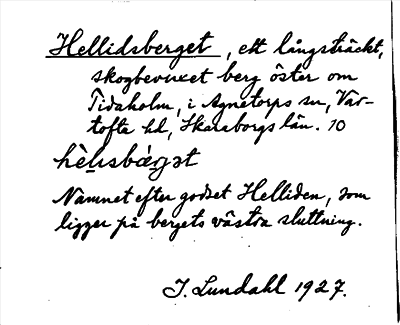 Hellidsberget, ett långsträckt,
skogbevuxet berg öster om
Tidaholm, i Agnetorps sn, Var-
tofta hd, Skaraborgs län. 10
hèlısbærgət
Namnet efter godset Helliden, som
ligger på bergets västra sluttning.
J. Lundahl 1927.